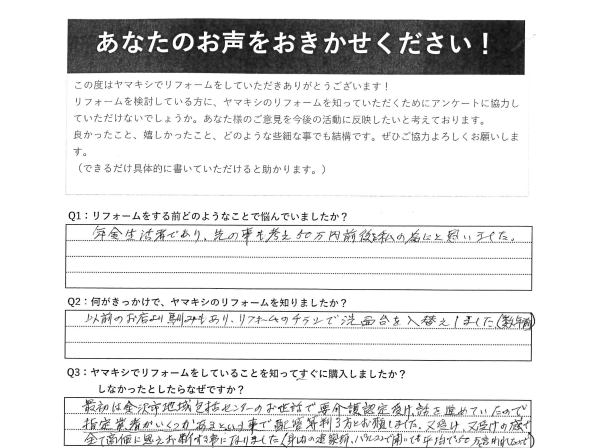 あなたのお声をおきかせください！
この度はヤマキシでリフォームをしていただきありがとうございます！
リフォームを検討している方に、ヤマキシのリフォームを知っていただくためにアンケートに協力し
ていただけないでしょうか。あなた様のご意見を今後の活動に反映したいと考えております。
良かったこと、嬉しかったこと、どのような些細な事でも結構です。ぜひご協力よろしくお願いしま
す。
（できるだけ具体的に書いていただけると助かります。）
Q1：リフォームをする前どのようなことで悩んでいましたか？
年金生活者であり、先の事も考え50万円前後を私の為にと思いました。
Q2：何がきっかけで、ヤマキシのリフォームを知りましたか？
以前のお店より馴みもあり、リフォームのチラシで洗面台を入替えしました(数年前)
Q3：ヤマキシでリフォームをしていることを知ってすぐに購入しましたか？
しなかったとしたらなぜですか？
最初は金沢市地域包括センターのお世話で要介護認定受け、話を進めていたので
指定業者がいくつかあるという事で
全て高価に思えお断りする事になりました